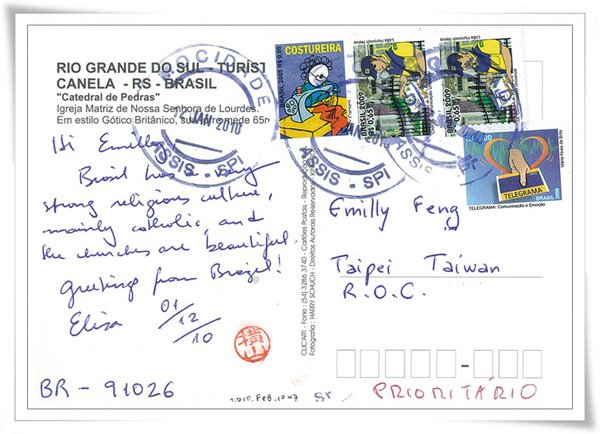 RIO GRANDE DO SUL - TURIST
CANELA - RS - BRASIL
"Catedral de Pedras"
Igreja Matriz de Nossa Senhora de Lourdes.
Em estilo Gótico Britânico, sua torre mede 65m
Hi Emilly,
Brasil has very
strong religious culture,
mainly catholic, and
the churches are beautiful.
Greeting from Brazil!
Elisa 01/12/10
BR - 91026
CLIC'ART - Fone: (54) 3286-3740 - Cartões Postais - Reprodução
Fotografia: HARRY SCHUCH - Direitos Autorais Reservados
COSTUREIRA
CIDADE
JAN 2010
ASSIS - SPI
JAN 2010
ASSIS - SPI
TELEGRAMA
BRASIL 2009
TELEGRAMA: Comunicação e Emoção
Emilly Feng
Taipei Taiwan
R.O.C.
PRIORITÁRIO